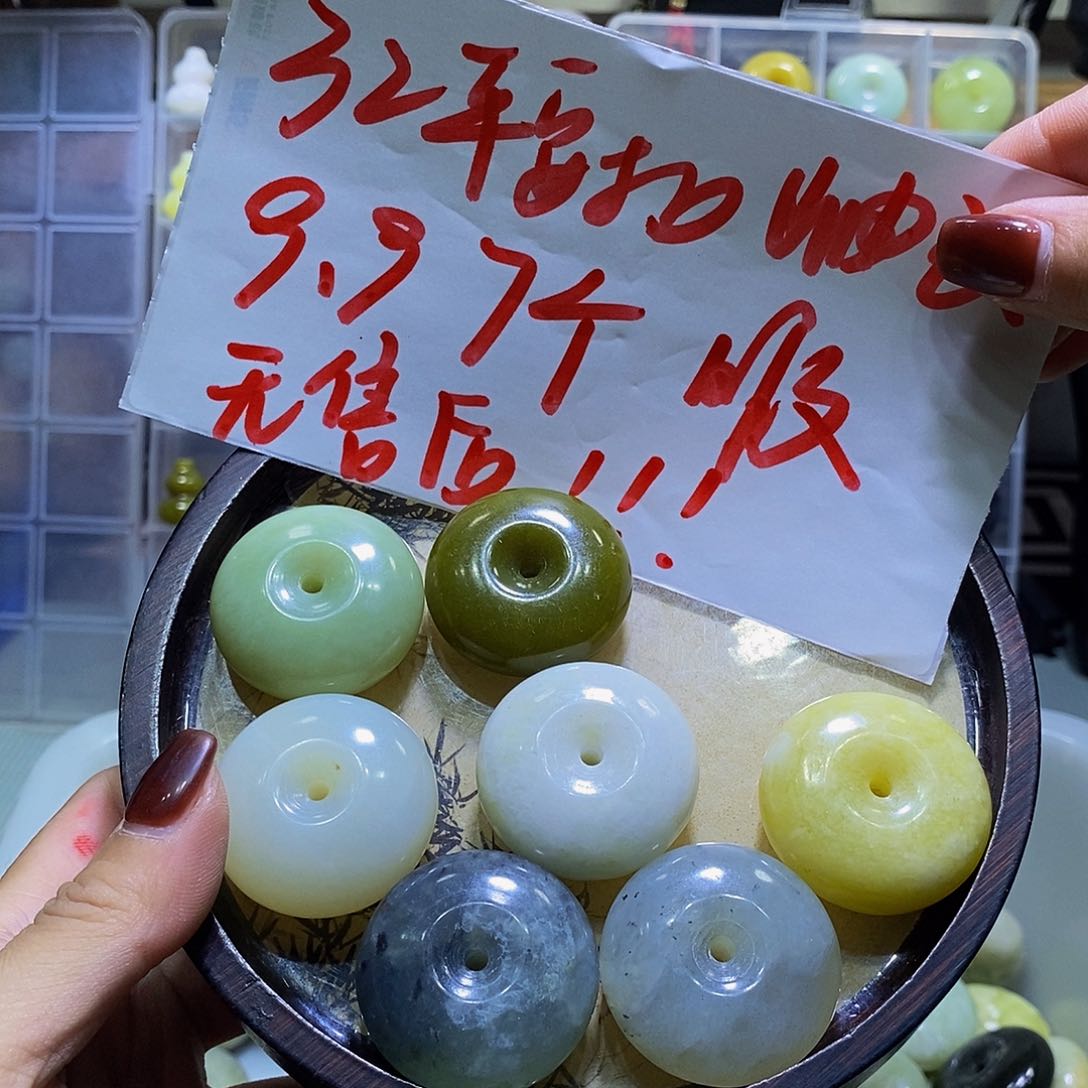 32平安扣
9.9 7个
无售后!!!